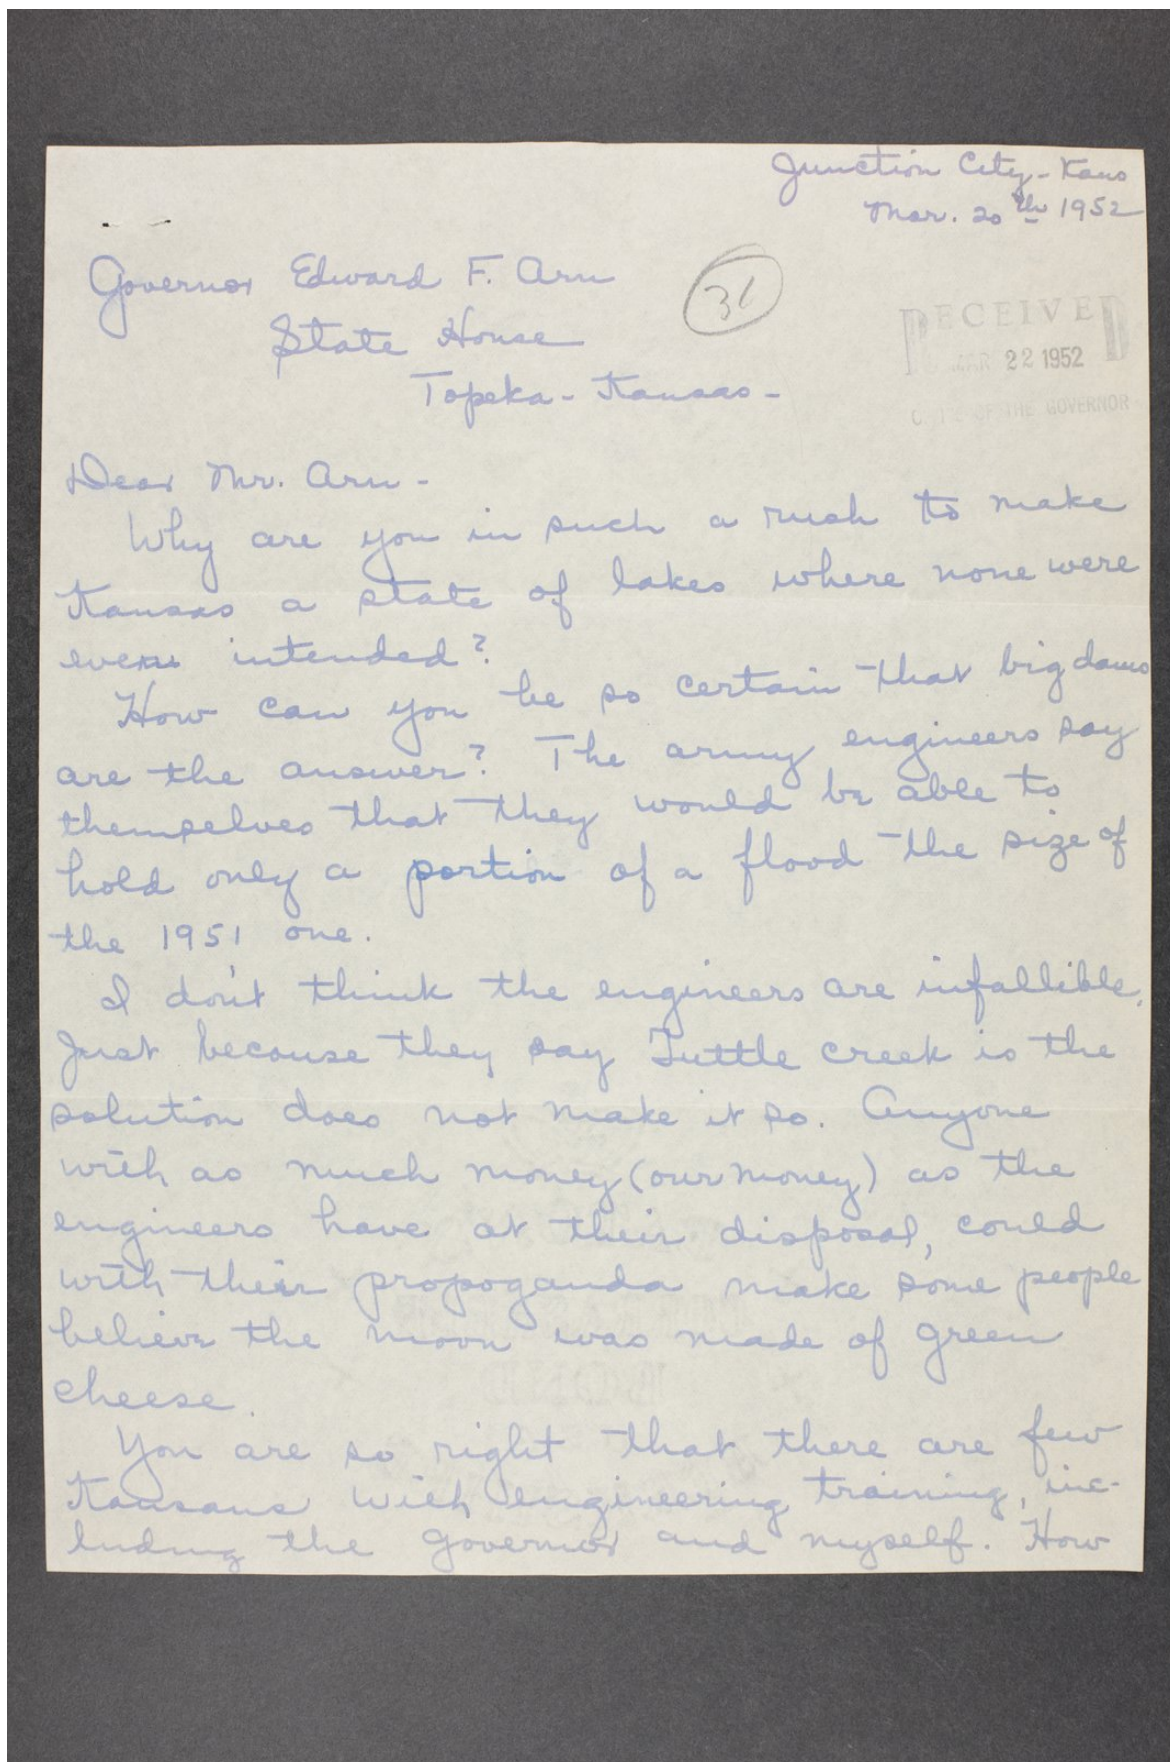 Junction City - Kans
Mar. 20th 1952
Governor Edward F. Arn
31
State House
RECEIVED
MAR 22 1952
Topeka - Kansas -
OFFICE OF THE GOVERNOR
Dear Mr. Arn -
Why are you in such a rush to make
Kansas a state of lakes where none were
ever intended?
How can you be so certain that big dams
are the answer? The army engineers say
themselves that they would be able to
hold only a portion of a flood the size of
the 1951 one.
I don't think the engineers are infallible.
Just becouse they say Tuttle creek is the
solution does not make it so. Anyone
with as much money (our money) as the
engineers have at their disposal, could
with their propoganda make some people
believe the moon was made of green
cheese.
You are so right that there are few
Kansans with engineering training, inc-
luding the governor and myself. How